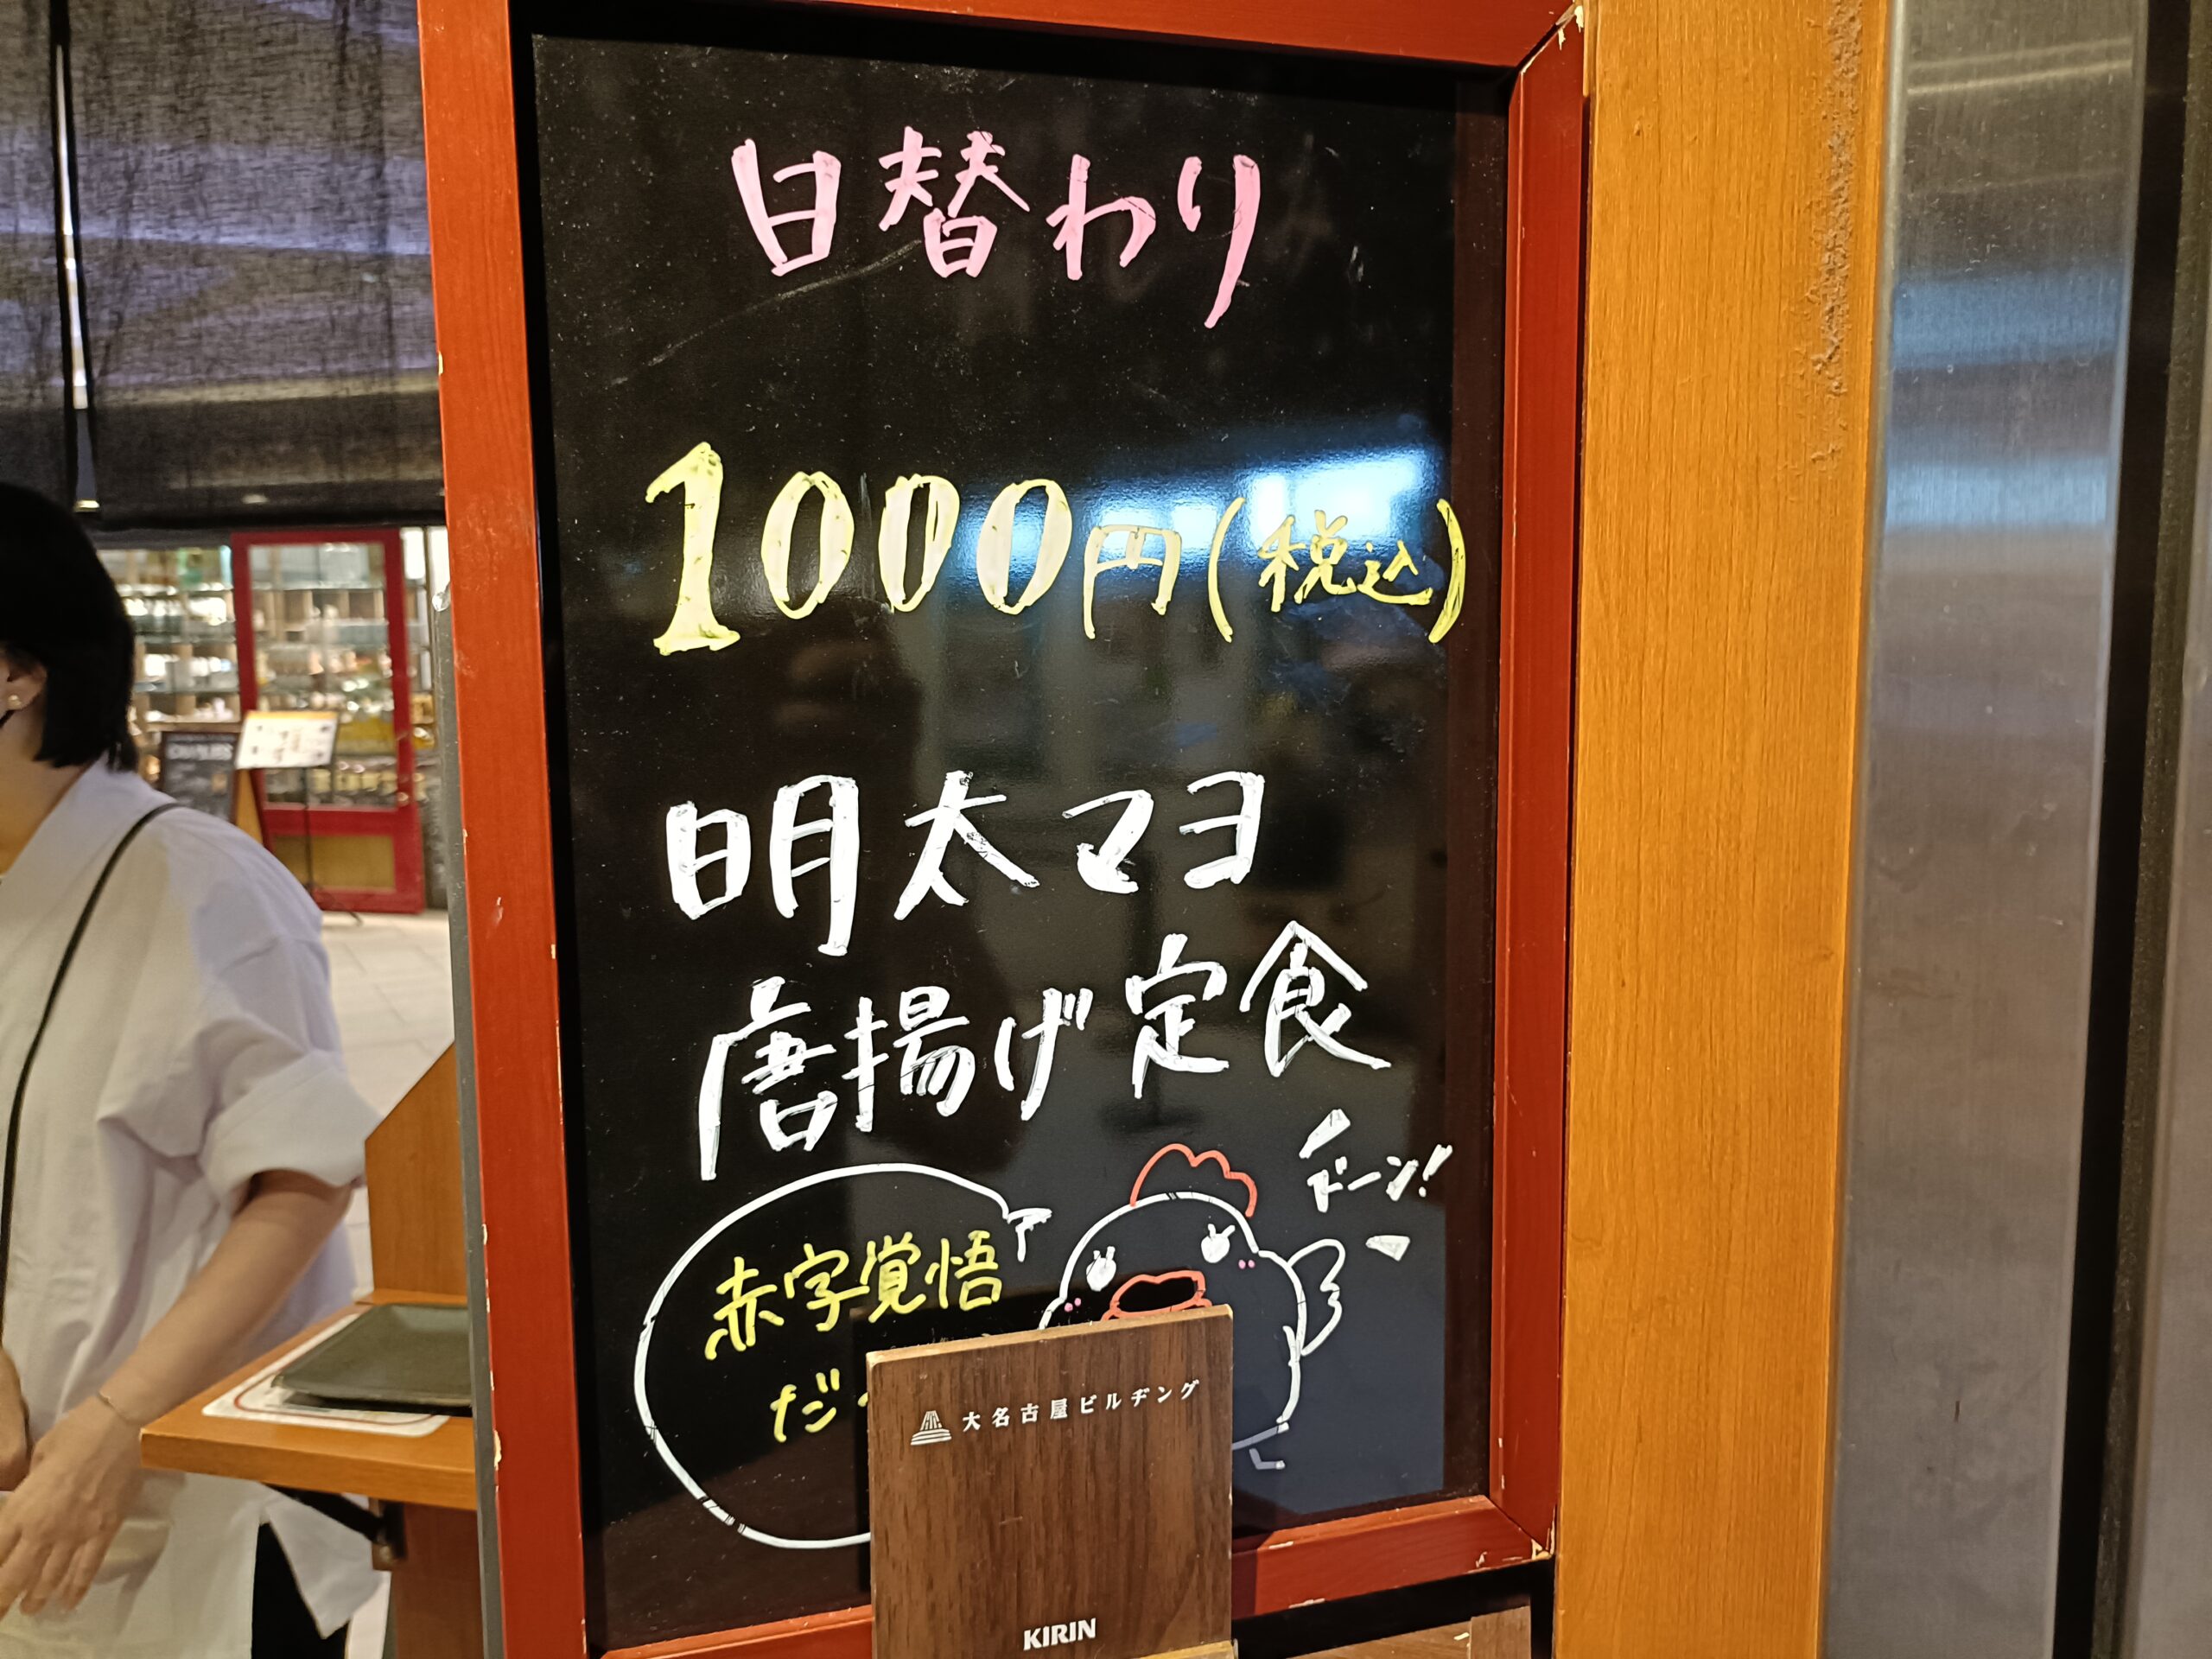 日替わり
1000円(税込)
明太マヨ
唐揚げ定食
ドーン!
赤字覚悟
だ
大名古屋ビルヂング
KIRIN